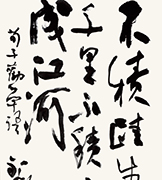 不積跬步
千里不積
成江河
荀子勸學語